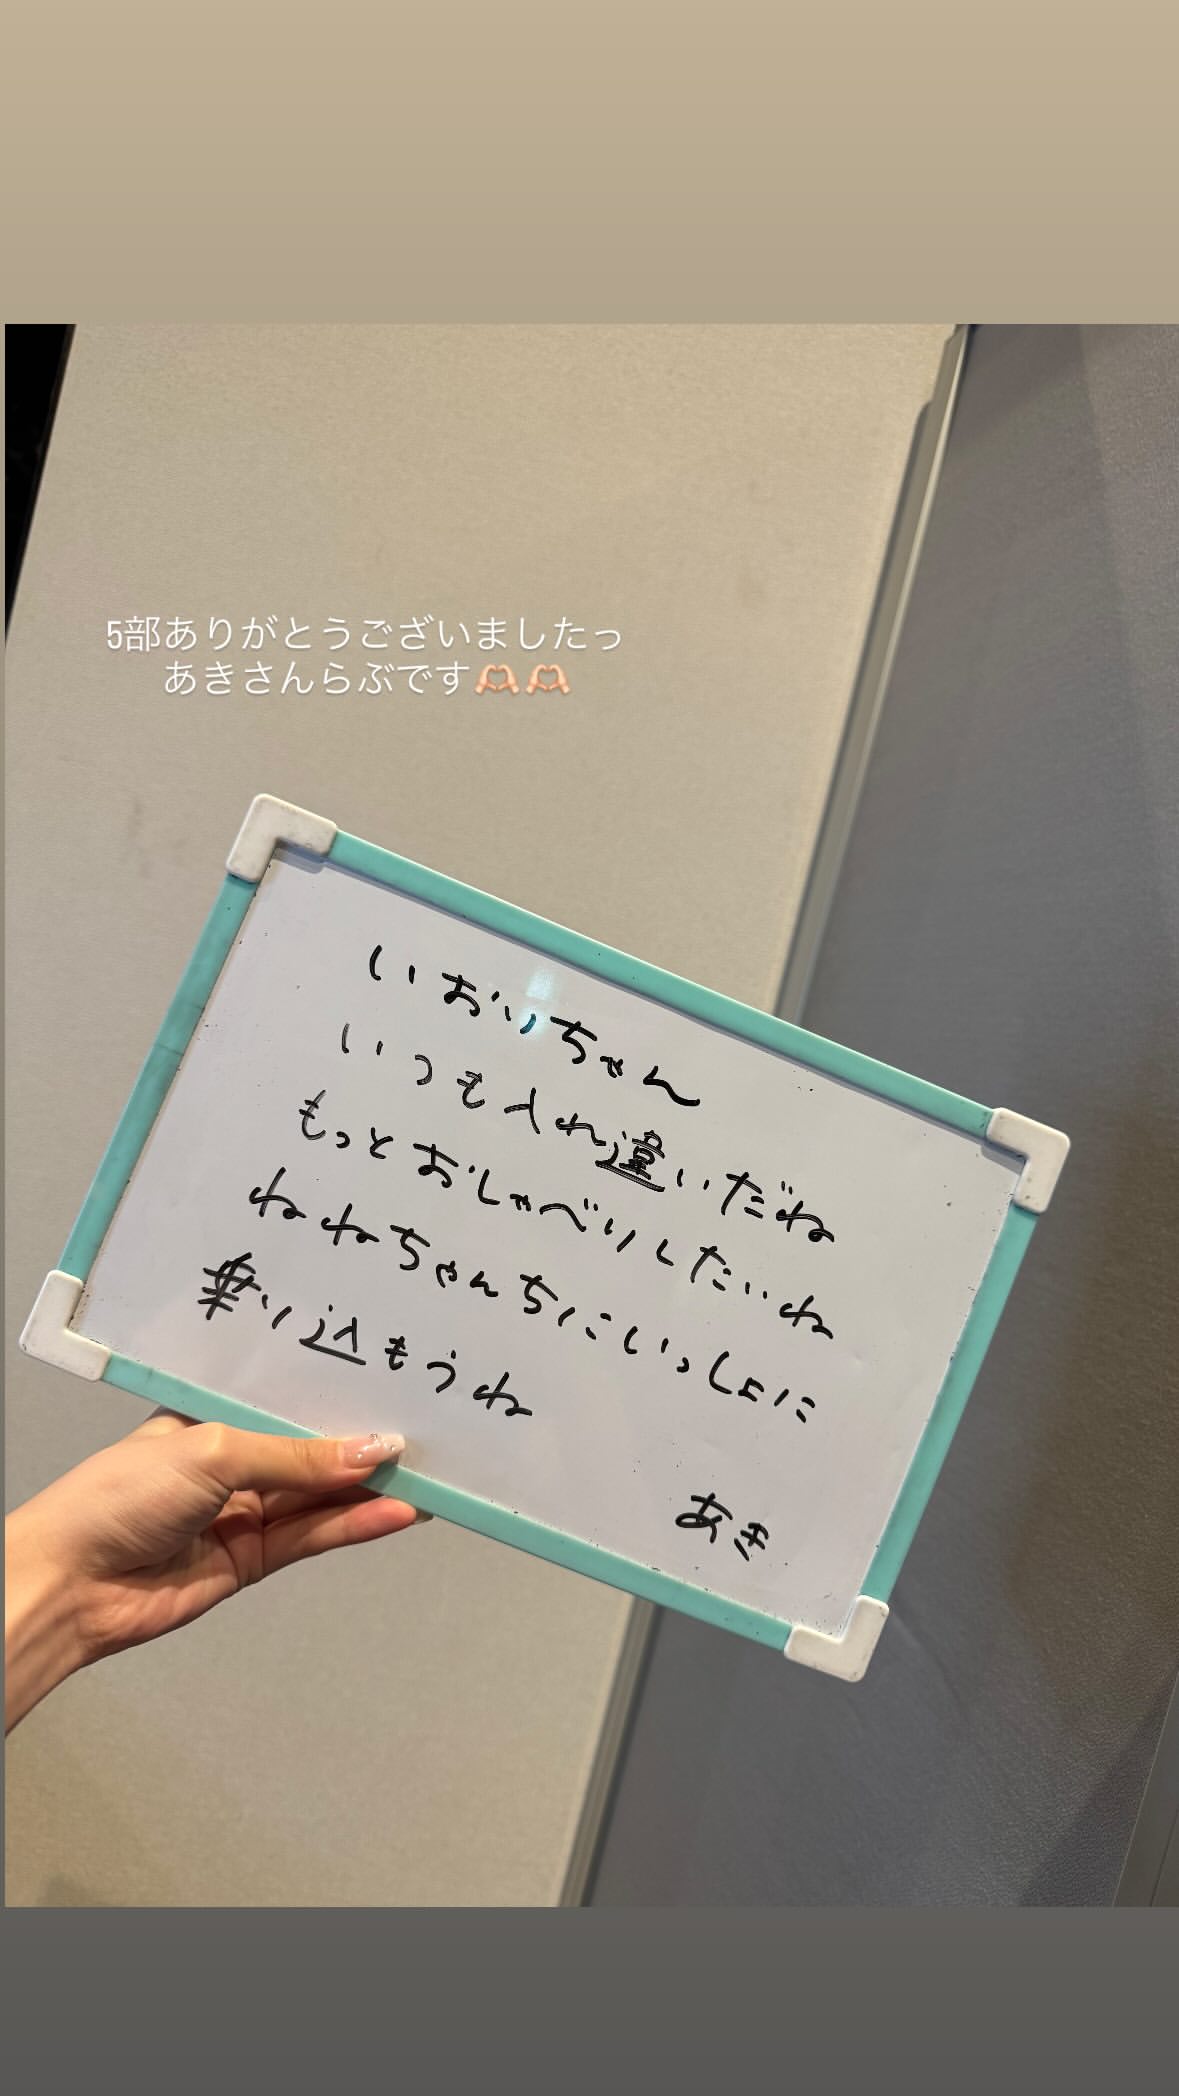 5部ありがとうございましたっ
あきさんらぶです🫶🏻🫶🏻
いおりちゃん
いつも入れ違いだね
もっとおしゃべりしたいね
ねねちゃんちにいっしょに
乗り込もうね
あき